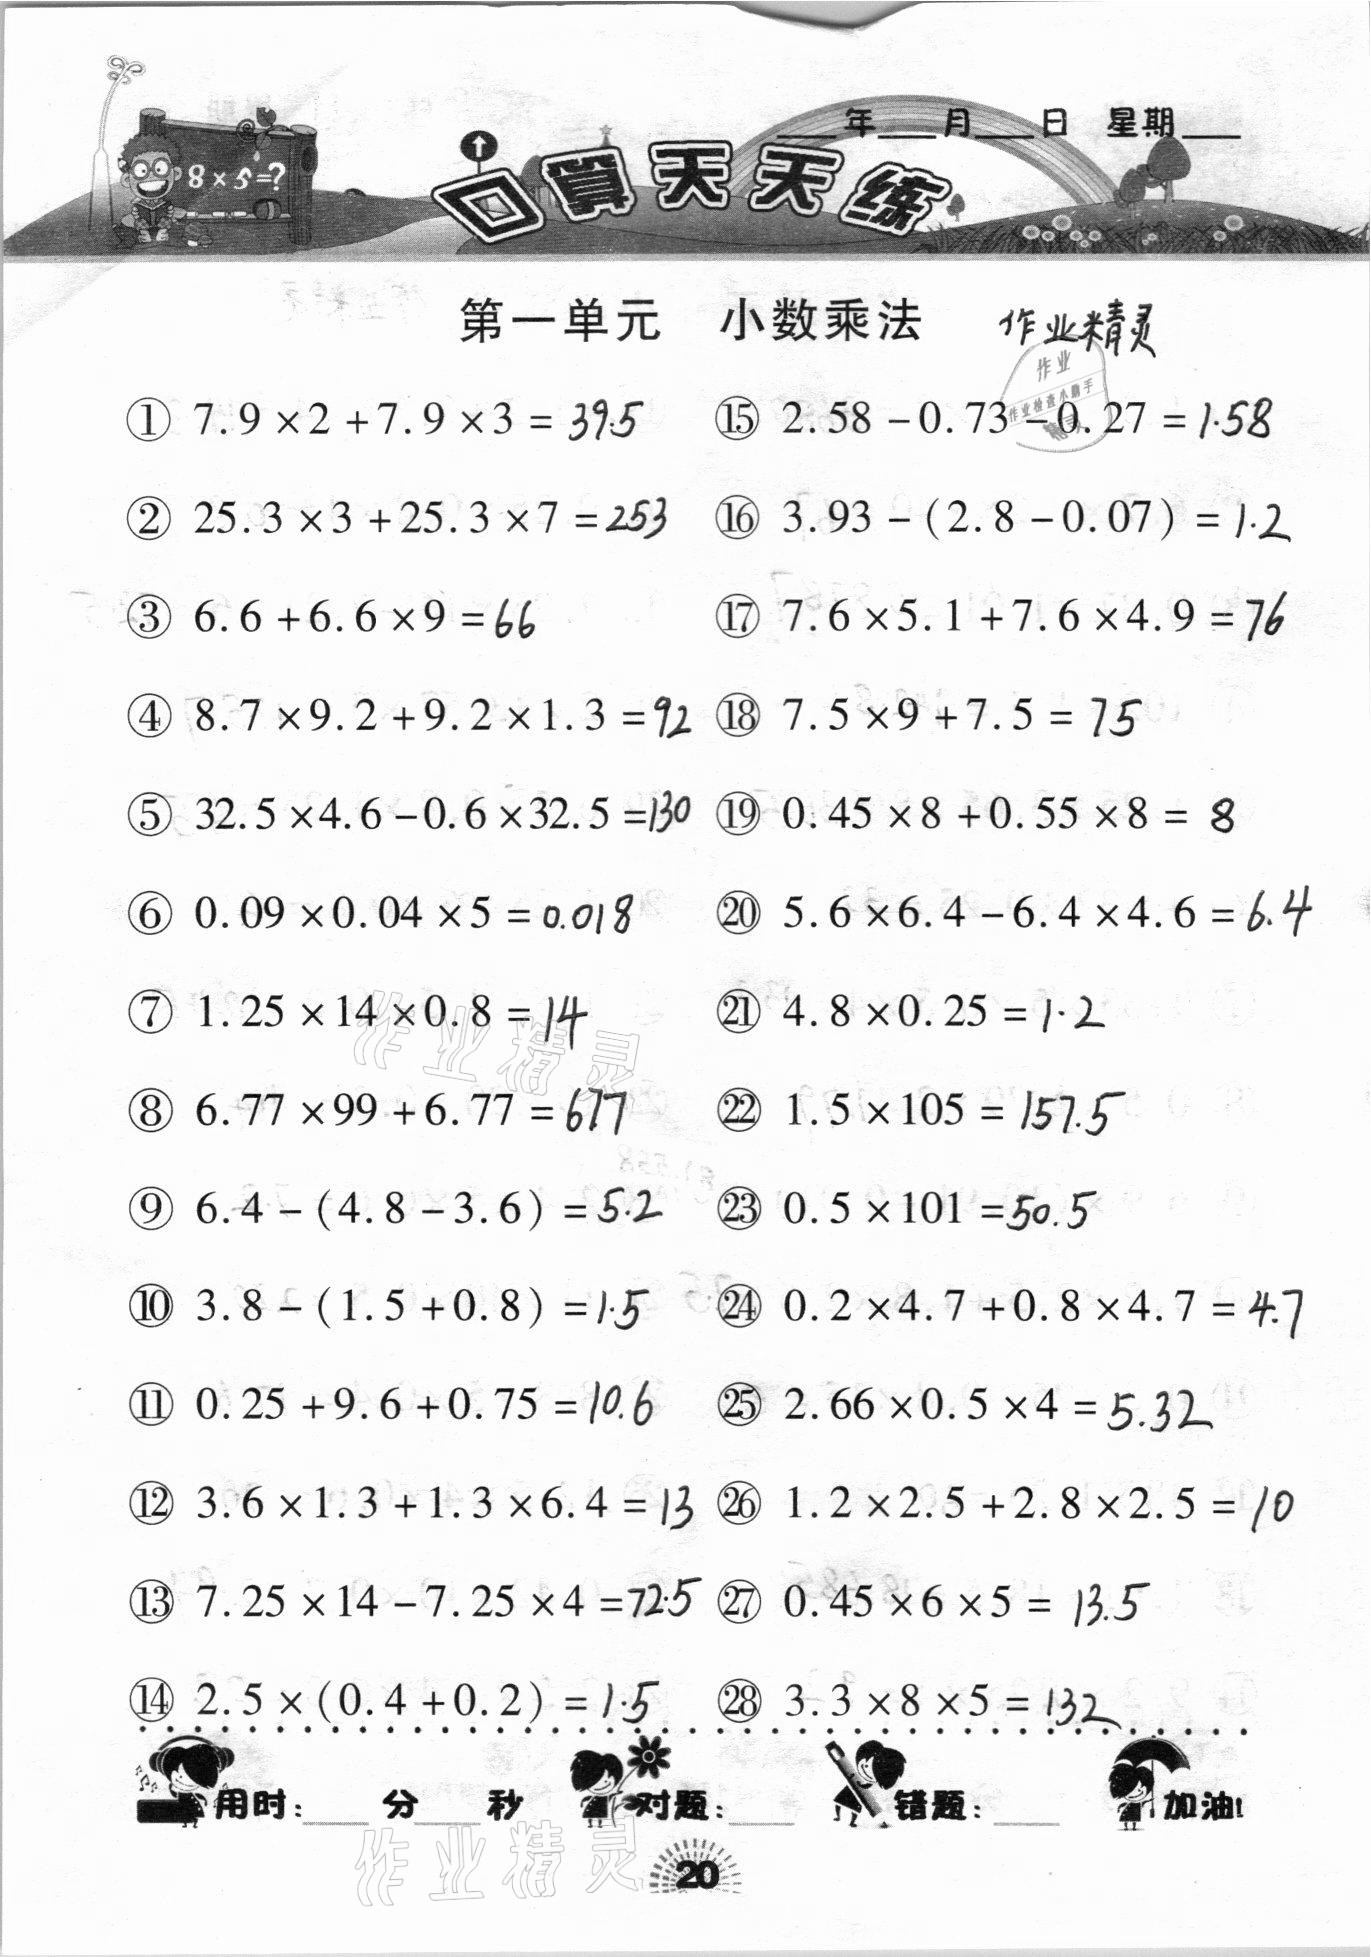 ___年___月___日 星期___
8×5=?
口算天天练
第一单元 小数乘法 作业精灵
作业
作业检查小助手
① 7.9×2+7.9×3=39.5
⑮ 2.58-0.73-0.27=1.58
② 25.3×3+25.3×7=253
⑯ 3.93-(2.8-0.07)=1.2
③ 6.6+6.6×9=66
⑰ 7.6×5.1+7.6×4.9=76
④ 8.7×9.2+9.2×1.3=92
⑱ 7.5×9+7.5=75
⑤ 32.5×4.6-0.6×32.5=130
⑲ 0.45×8+0.55×8=8
⑥ 0.09×0.04×5=0.018
⑳ 5.6×6.4-6.4×4.6=6.4
⑦ 1.25×14×0.8=14
㉑ 4.8×0.25=1.2
作业精灵
⑧ 6.77×99+6.77=677
㉒ 1.5×105=157.5
⑨ 6.4-(4.8-3.6)=5.2
㉓ 0.5×101=50.5
⑩ 3.8-(1.5+0.8)=1.5
㉔ 0.2×4.7+0.8×4.7=4.7
⑪ 0.25+9.6+0.75=10.6
㉕ 2.66×0.5×4=5.32
⑫ 3.6×1.3+1.3×6.4=13
㉖ 1.2×2.5+2.8×2.5=10
⑬ 7.25×14-7.25×4=72.5
㉗ 0.45×6×5=13.5
⑭ 2.5×(0.4+0.2)=1.5
㉘ 3.3×8×5=132
用时:___分___秒 对题:___ 错题:___ 加油!
作业精灵
20